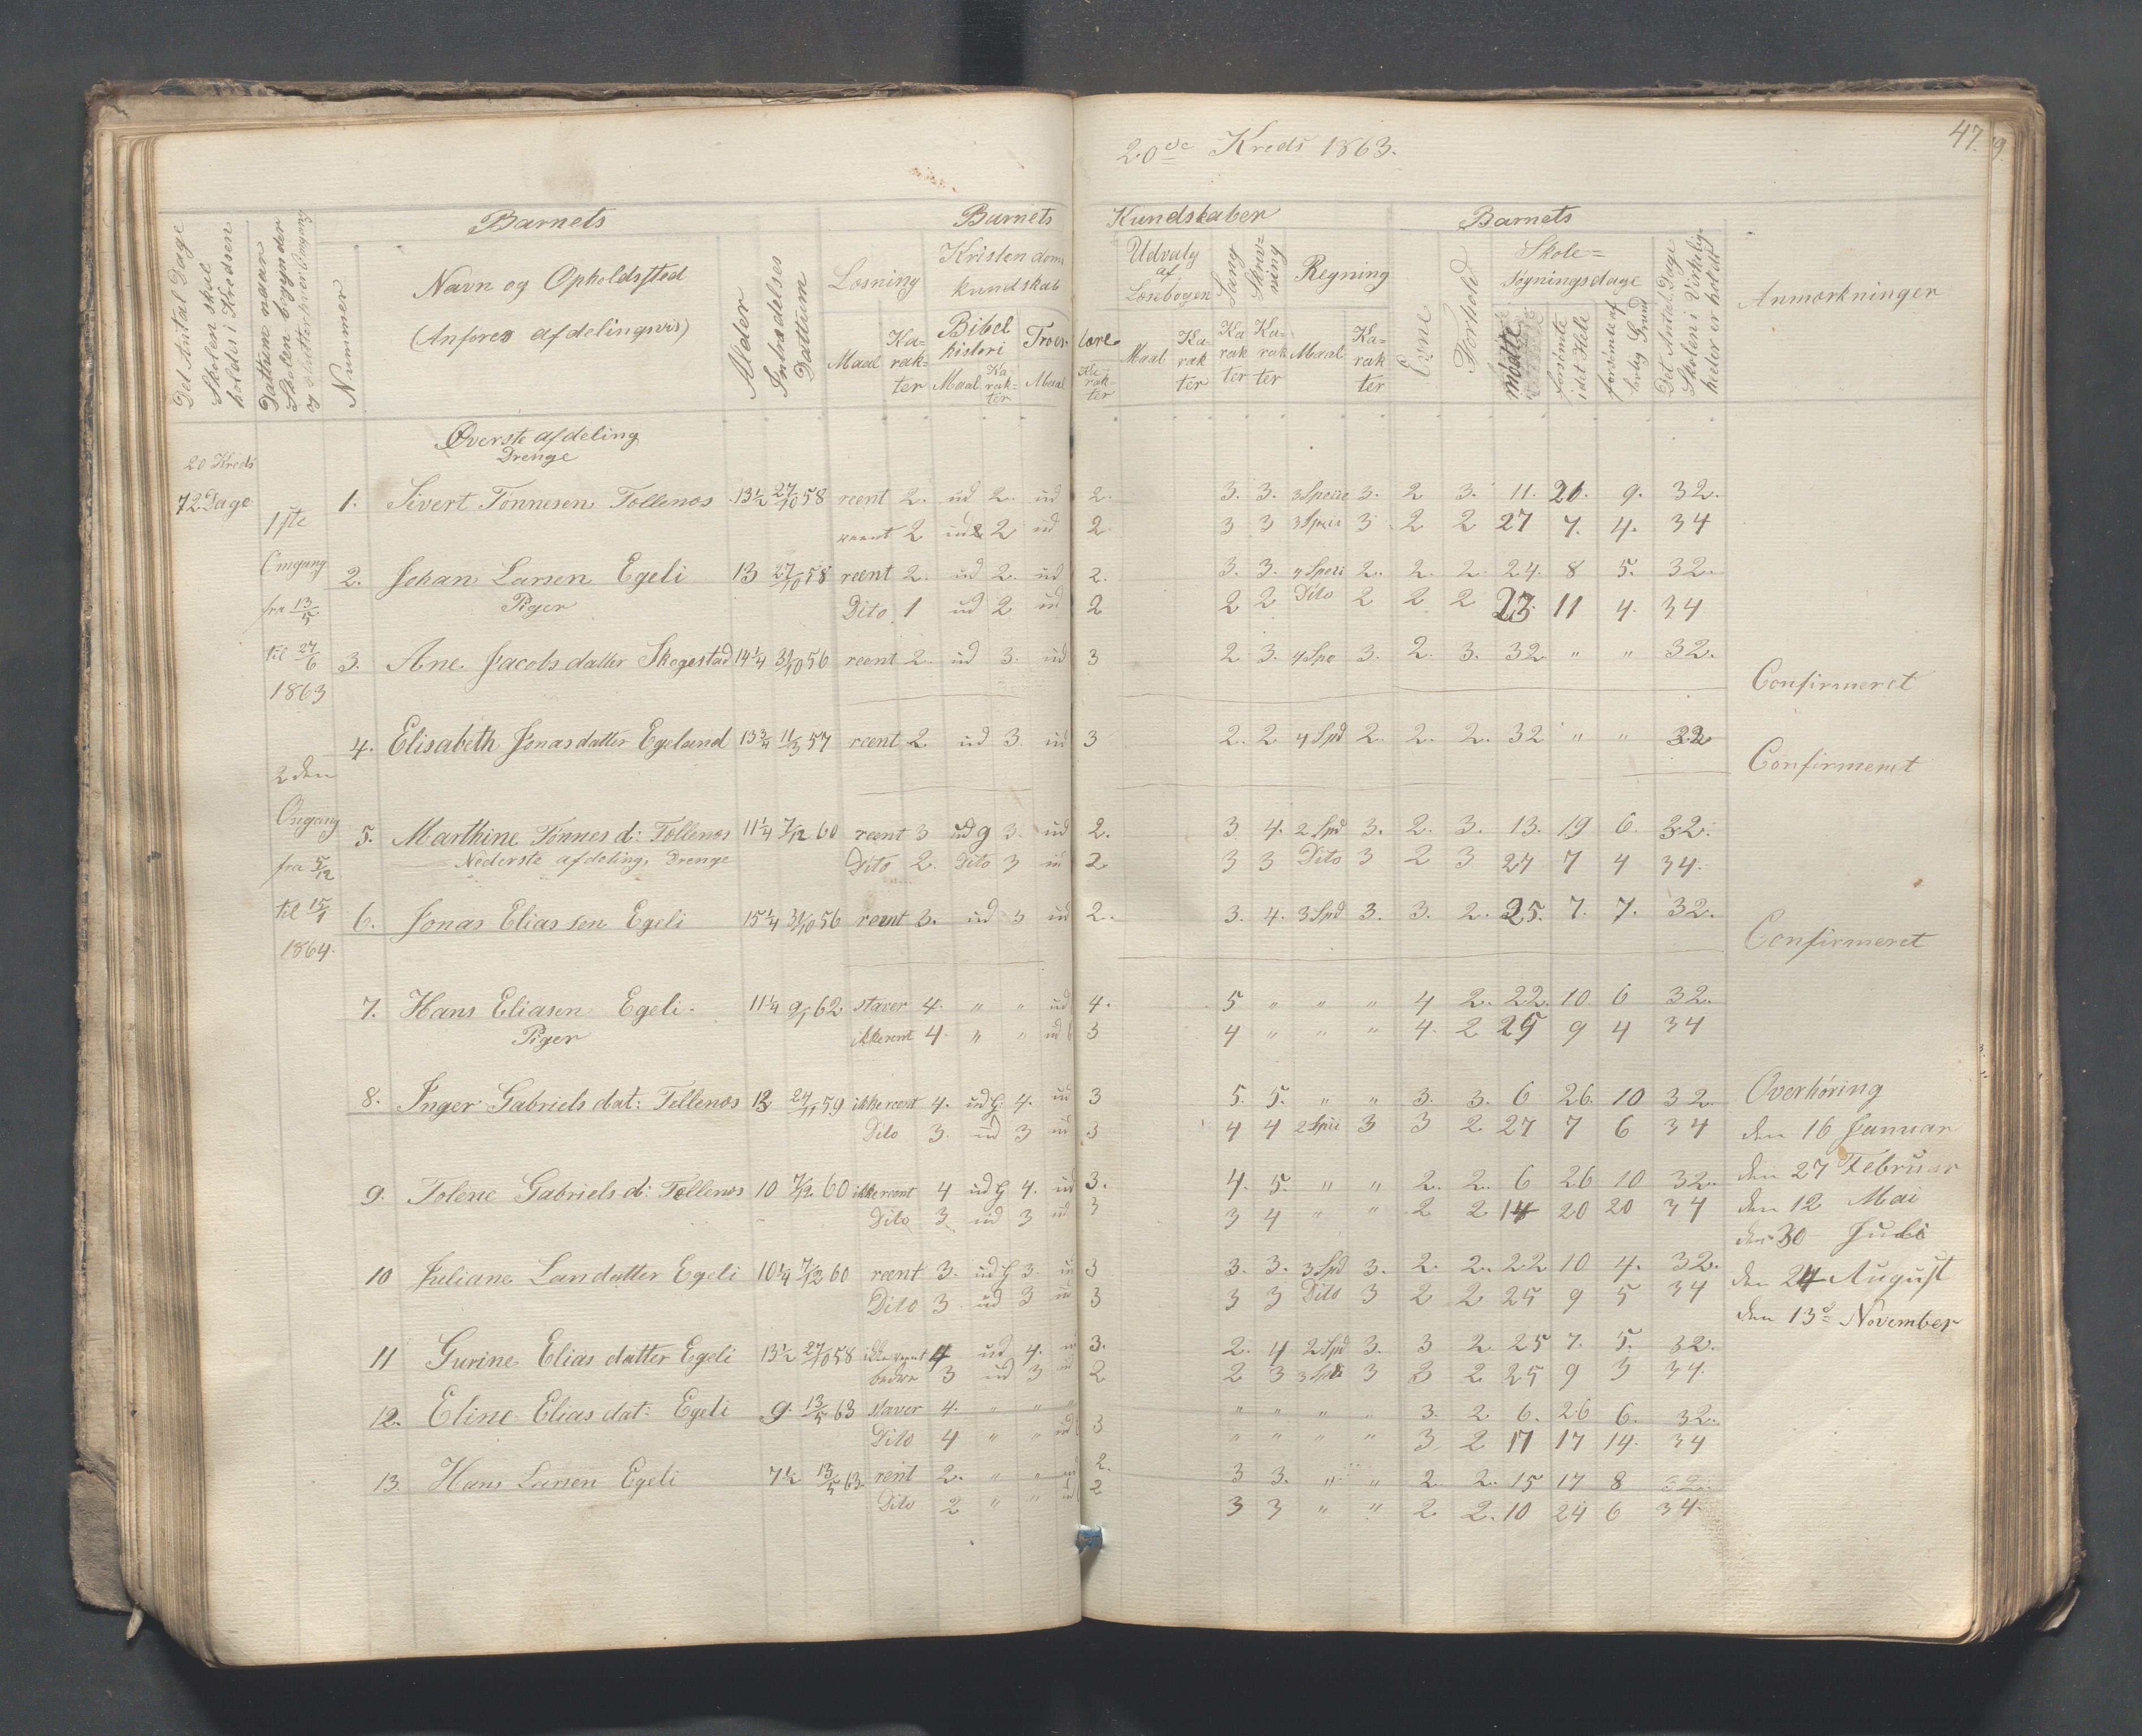 20de Kreds 1863.
47.
9.
Barnets
Barnets
Kundskaber
Barnets
Det Antal Dage
Skolen skal
holdes i Kredsen
Datum naar
Skolen begynder
og slutter hver Omgang
Nummer
Navn og Opholdssted
(Anføres afdelingsvis)
Alder
Indtrædelses
Dattum
Læsning
Kristendoms
kundskab
Udvalg
af
Læsebogen
Sang
Skriv=
ning
Regning
Evne
Forhold
Skole=
søgningsdage
Det Antal Dage
Skolen i Virkelig-
heden er holdt
Anmærkninger
Bibel
histori
Troes
lære
Maal
Ka-
rak-
ter
Maal
Ka-
rak-
ter
Maal
Ka-
rak-
ter
Maal
Ka-
rak
ter
Ka
rak
ter
Ka-
rak
ter
Maal
Ka-
rak
ter
mødte
forsømte
i det Hele
forsømte af
lovlig Grund
Øverste afdeling
Drenge
20 Kreds
72 Dage
1ste
Omgang
fra 13/5
til 27/6
1863
2den
Omgang
fra 5/12
til 15/1
1864.
1. Sivert Tønnesen Tollenæs 13½ 27/10 58 reent 2. ud 2. ud 2. 3. 3. 3 Specie 3. 2 3. 11. 21. 9. 32.
reent 2 ud 2 ud 2 3 3 3 Speci 3 2 2 27 7. 4. 34
2. Johan Larsen Egeli 13 27/10 58 reent 2. ud 2. ud 2. 3. 3. 4 Speci 2. 2. 2. 24. 8 5. 32.
Piger Dito 1 ud 2 ud 2 2 2 Dito 2 2 2 23. 11 4. 34
3. Ane Jacobsdatter Skogestad 14¼ 31/10 56 reent 2. ud 3. ud 3 2 3. 4 Spe 3. 2. 3. 32 " " 32.
Confirmeret
4. Elisabeth Jonasdatter Egeland 13¾ 11/3 57 reent 2. ud 3 ud 3 2. 2 4 Spd 2. 2. 2. 32 " " 32
Confirmeret
5. Marthine Tønnes d: Tollenæs 11¼ 7/12 60 reent 3 ud g 3. ud 2. 3 4. 2 Spd 3. 2. 3. 13. 19 6. 32.
Nederste afdeling, Drenge Dito 2. Dito 3 ud 2 3 3 Dito 3 2 3 27 7 4 34.
6. Jonas Eliassen Egeli 15¼ 31/10 56 reent 3. ud 3 ud 2. 3. 4. 3 Spd 3. 3. 2. 25. 7. 7. 32.
Confirmeret
7. Hans Eliasen Egeli. 11¼ 9/1 62 staver 4. " " ud 4. 5 " " " 4 2. 22. 10. 6 32.
Piger ikke rent 4. " " ud 3 4 " " " 4. 2 25 9 4 34
8. Inger Gabriels dat: Tollenæs 12 24/11 59 ikke reent 4. ud g 4. ud 3 5. 5. " " 3. 3. 6 26. 10 32. Overhøring
Dito 3. ud 3 ud 3 4 4 2 Speci 3 3 2. 27 7 6 34 den 16 Januar
9. Tolene Gabriels d: Tollenæs 10 7/12 60 ikke reent 4 ud g 4. ud 3. 4. 5. " " 2. 2. 6 26 10 32. den 27 Februar
Dito 3. ud 3 ud 3 3 4 " " 2 2 14 20 20 34 den 12 Mai
den 30 Juli
10 Juliane Larsdatter Egeli 10¼ 7/12 60 reent 3. ud g 3 ud 3 3. 3. 3 Spd 3. 2. 2. 22 10 4. 32. den 24 August
Dito 3 ud 3 ud 3 3 3 Dito 3 2 2 25 9 5 34
den 13de November
11 Gurine Elias datter Egeli 13½ 27/10 58 ikke reent 4 ud 4. ud 3. 2. 4 2 Spd 3. 3 2. 25 7. 5. 32.
bedre 3 ud 3 ud 2 2 3 3 Spd 3 3 2 25 9 3 34.
12. Eline Elias dat: Egeli 9. 13/5 63 staver 4. " " " " " " " 3. 2 6. 26 6. 32.
Dito 4 " " ud 3 " " " " 3 2 17 17 14. 34
13. Hans Larsen Egeli 7½ 13/5 63. rent 2. " " ud 2. 3 3. " " 2. 2. 15 17 8 32.
Dito 2 " " ud 2 3 3 " " 2 2. 10 24 6 34.